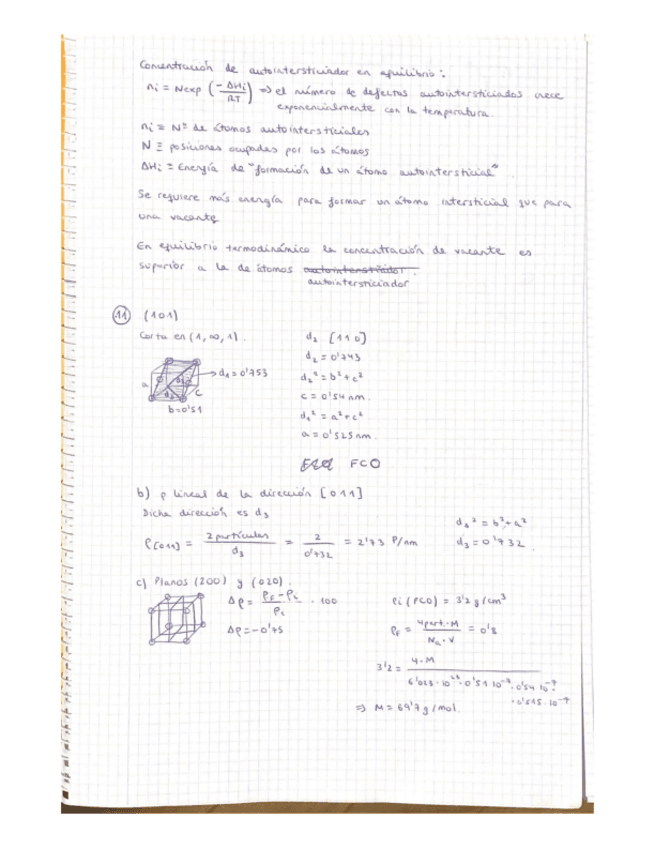 Concentración de autointersticiador en equilibrio:
ni = N exp (-ΔHi / RT) ⇒ el número de defectos autointersticiados crece
exponencialmente con la temperatura.
ni ≡ Nº de átomos autointersticiales
N ≡ posiciones ocupadas por los átomos
ΔHi = Energía de "formación de un átomo autointersticial"
Se requiere más energía para formar un átomo intersticial que para
una vacante
En equilibrio termodinámico la concentración de vacante es
superior a la de átomos autointersticiador
11 (101)
Corta en (1, ∞, 1)
a
d1 = 0'753
c
b=0'51
d2 [110]
d2 = 0'743
d2² = b² + c²
c = 0'54 nm.
d1² = a² + c²
a = 0'525 nm.
FCO
b) ρ lineal de la dirección [011]
Dicha dirección es d3
ρ[011] = 2 partículas / d3 = 2 / 0'732 = 2'73 P/nm
d3² = b² + a²
d3 = 0'732.
c) Planos (200) y (020).
Δρ = (ρF - ρi) / ρi · 100
Δρ = -0'75
ρi (FCO) = 3'2 g/cm³
ρF = 4 part. · M / NA · V = 0'8
3'2 = 4 · M / 6'023 · 10²³ · 0'51 10⁻⁷ · 0'54 10⁻⁷ · 0'525 · 10⁻⁷
⇒ M = 69'7 g/mol.